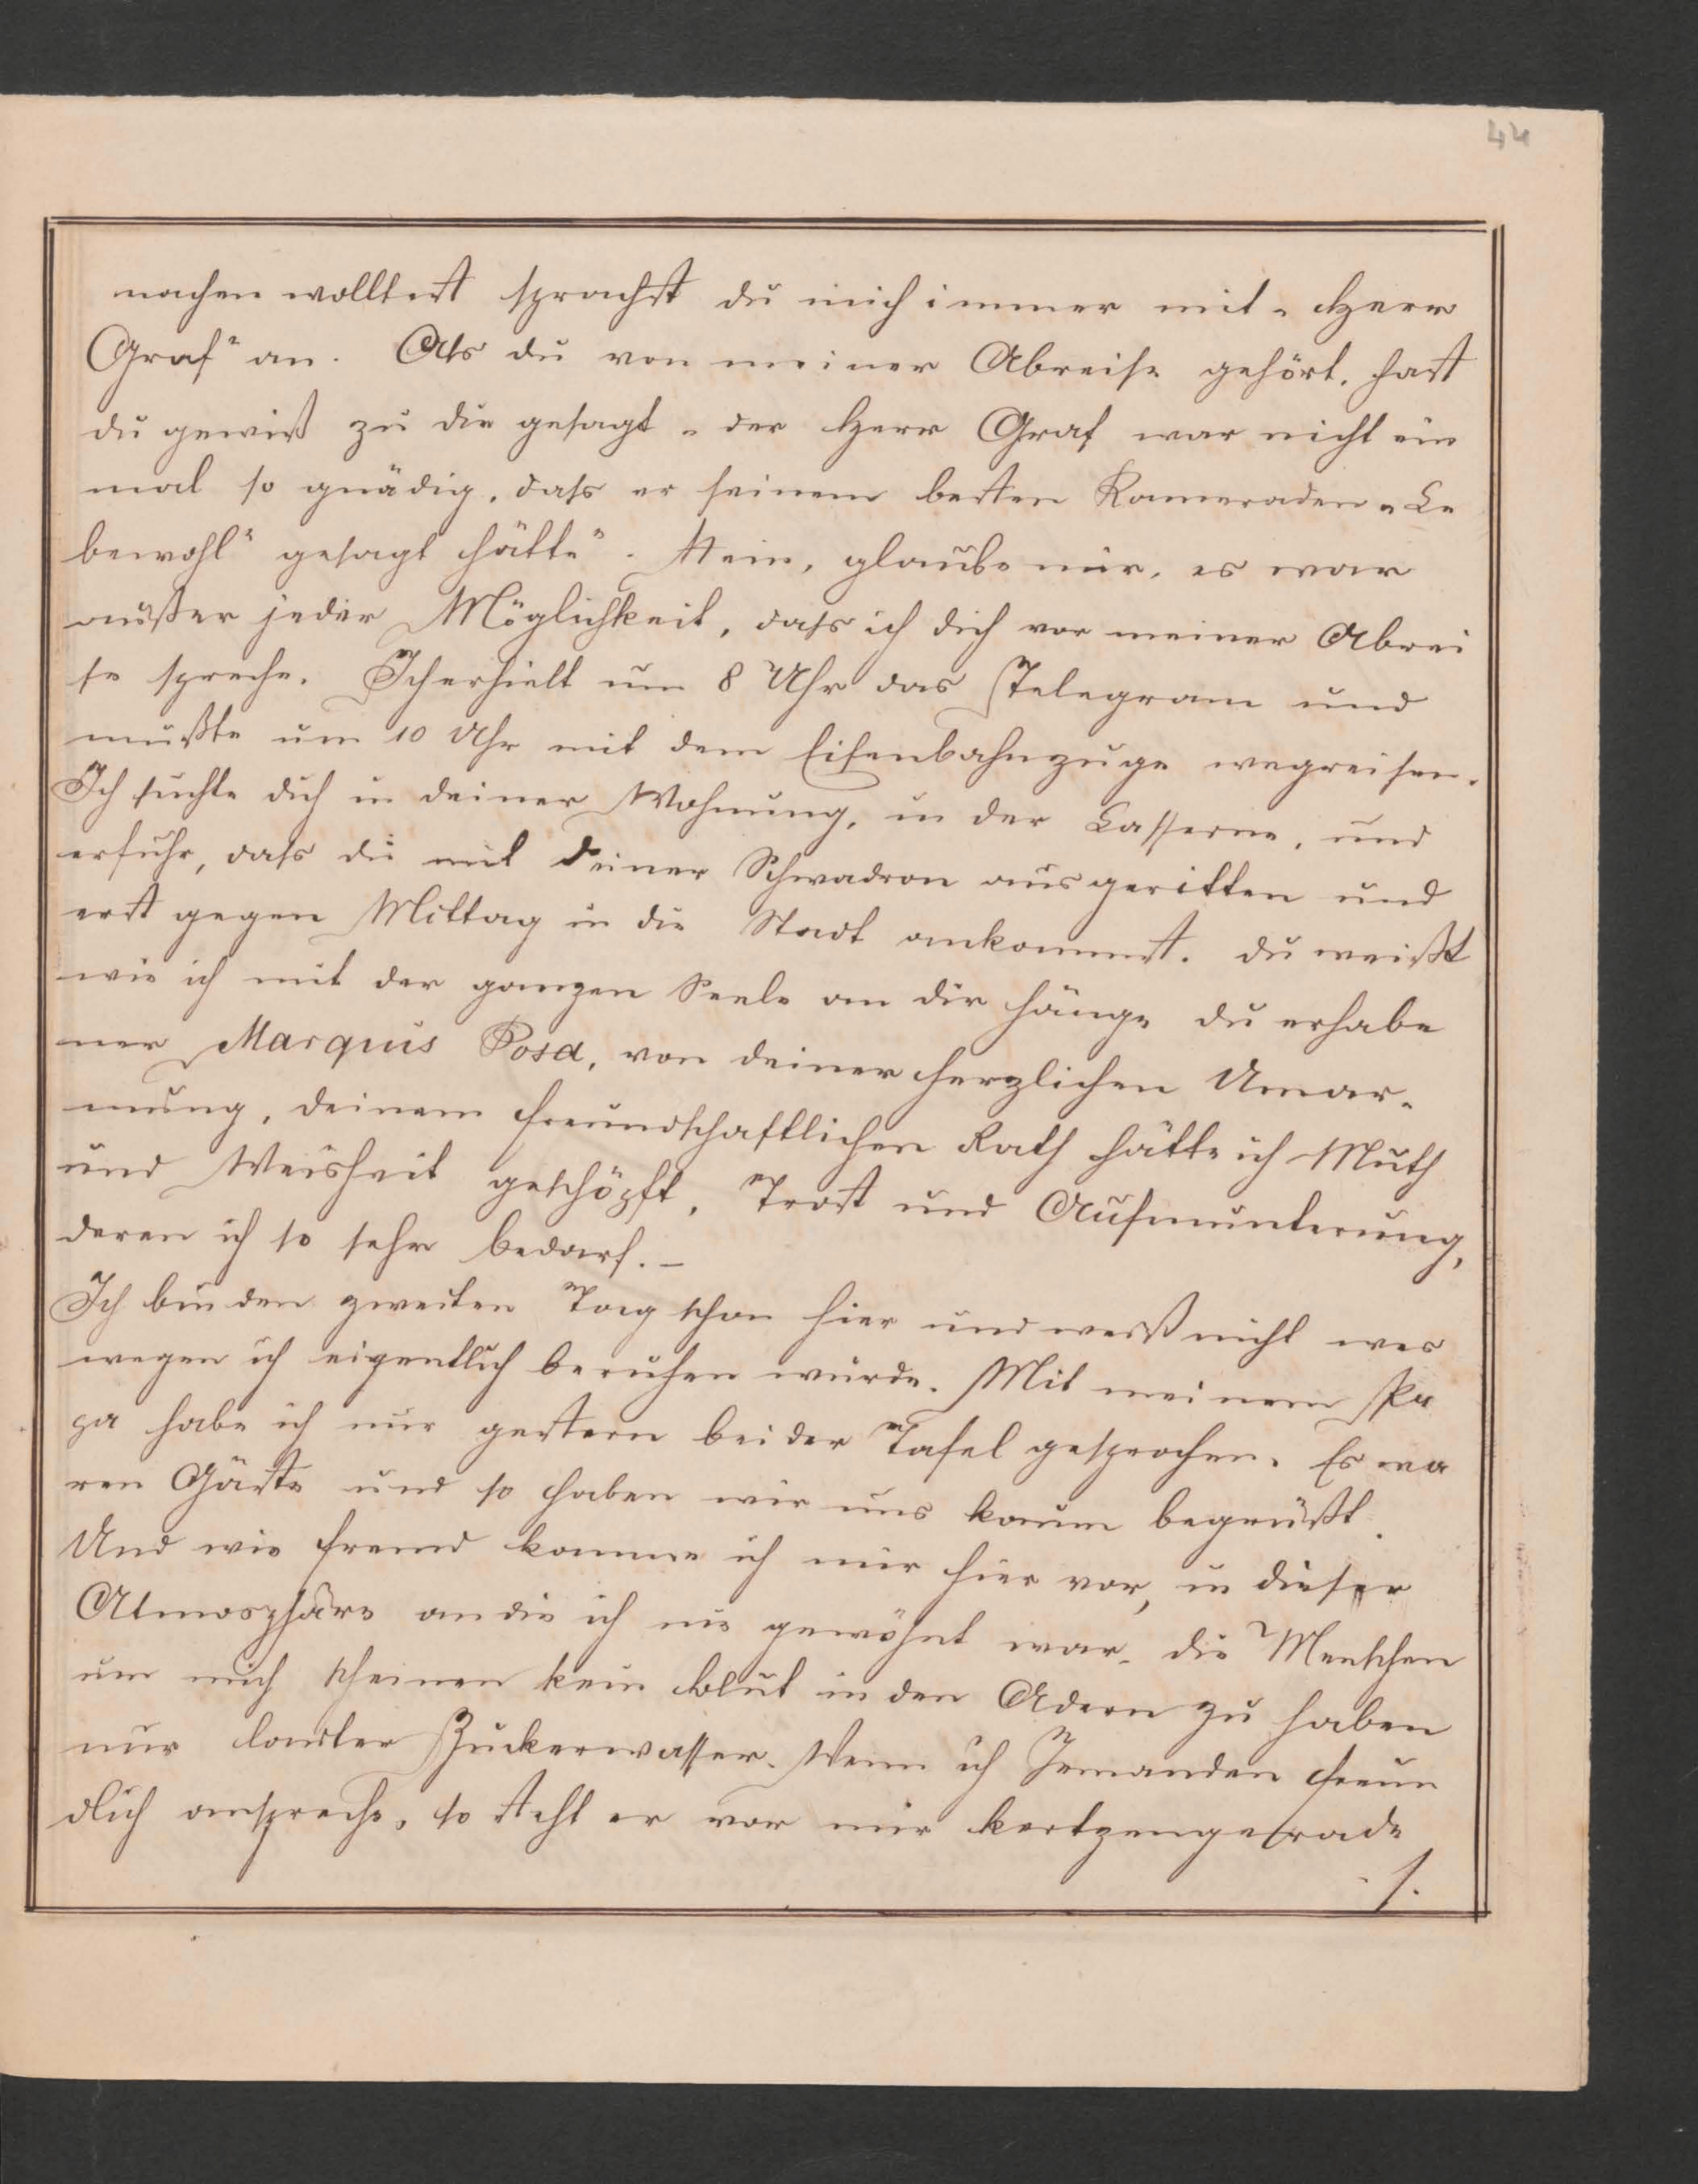 44
machen wolltest sprachst du mich immer mit „Herr
Graf" an. Als du von meiner Abreise gehört, hast
du gewiß zu dir gesagt „der Herr Graf war nicht ein
mal so gnädig, dass er seinem besten Kameraden „Le
bewohl" gesagt hätte". Nein, glaube mir, es war
außer jeder Möglichkeit, dass ich dich vor meiner Abrei
se spreche. Ich erhielt um 8 Uhr das Telegram und
mußte um 10 Uhr mit dem Eisenbahnzuge wegreisen.
Ich suchte dich in deiner Wohnung, in der Casserne, und
erfuhr, dass du mit deiner Schwadron ausgeritten und
erst gegen Mittag in die Stadt ankommst. Du weißt
wie ich mit der ganzen Seele an dir hänge du erhabe
ner Marquis Posa, von deiner herzlichen Umar-
mung, deinem freundschaftlichen Rath hätte ich Muth
und Weisheit geschöpft, Trost und Aufmunterung,
deren ich so sehr bedarf. –
Ich bin den zweiten Tag schon hier und weiß nicht wes
wegen ich eigentlich berufen wurde. Mit meinem Pa
pa habe ich nur gestern bei der Tafel gesprochen. Es wa
ren Gäste und so haben wir uns kaum begrüßt.
Und wie fremd komme ich mir hier vor, in dieser
Atmosphäre an die ich nie gewöhnt war. die Menschen
um mich scheinen kein Blut in den Adern zu haben
nur lauter Zuckerwasser. Wenn ich Jemanden freun
dlich anspreche, so steht er vor mir kertzengerade
./.